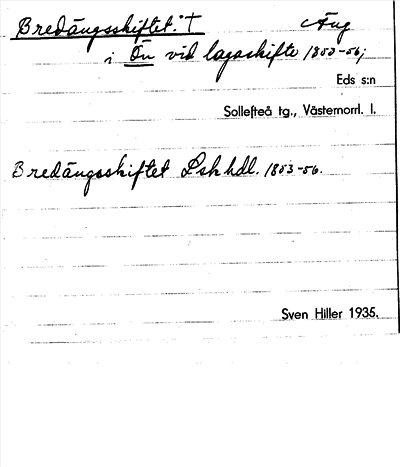 Bredängsskiftet: † Äng
i Ön vid lagaskifte 1853-56;
Eds s:n
Sollefteå tg., Västernorrl. l.
Bredängsskiftet Lsk hdl. 1853-56.
Sven Hiller 1935.